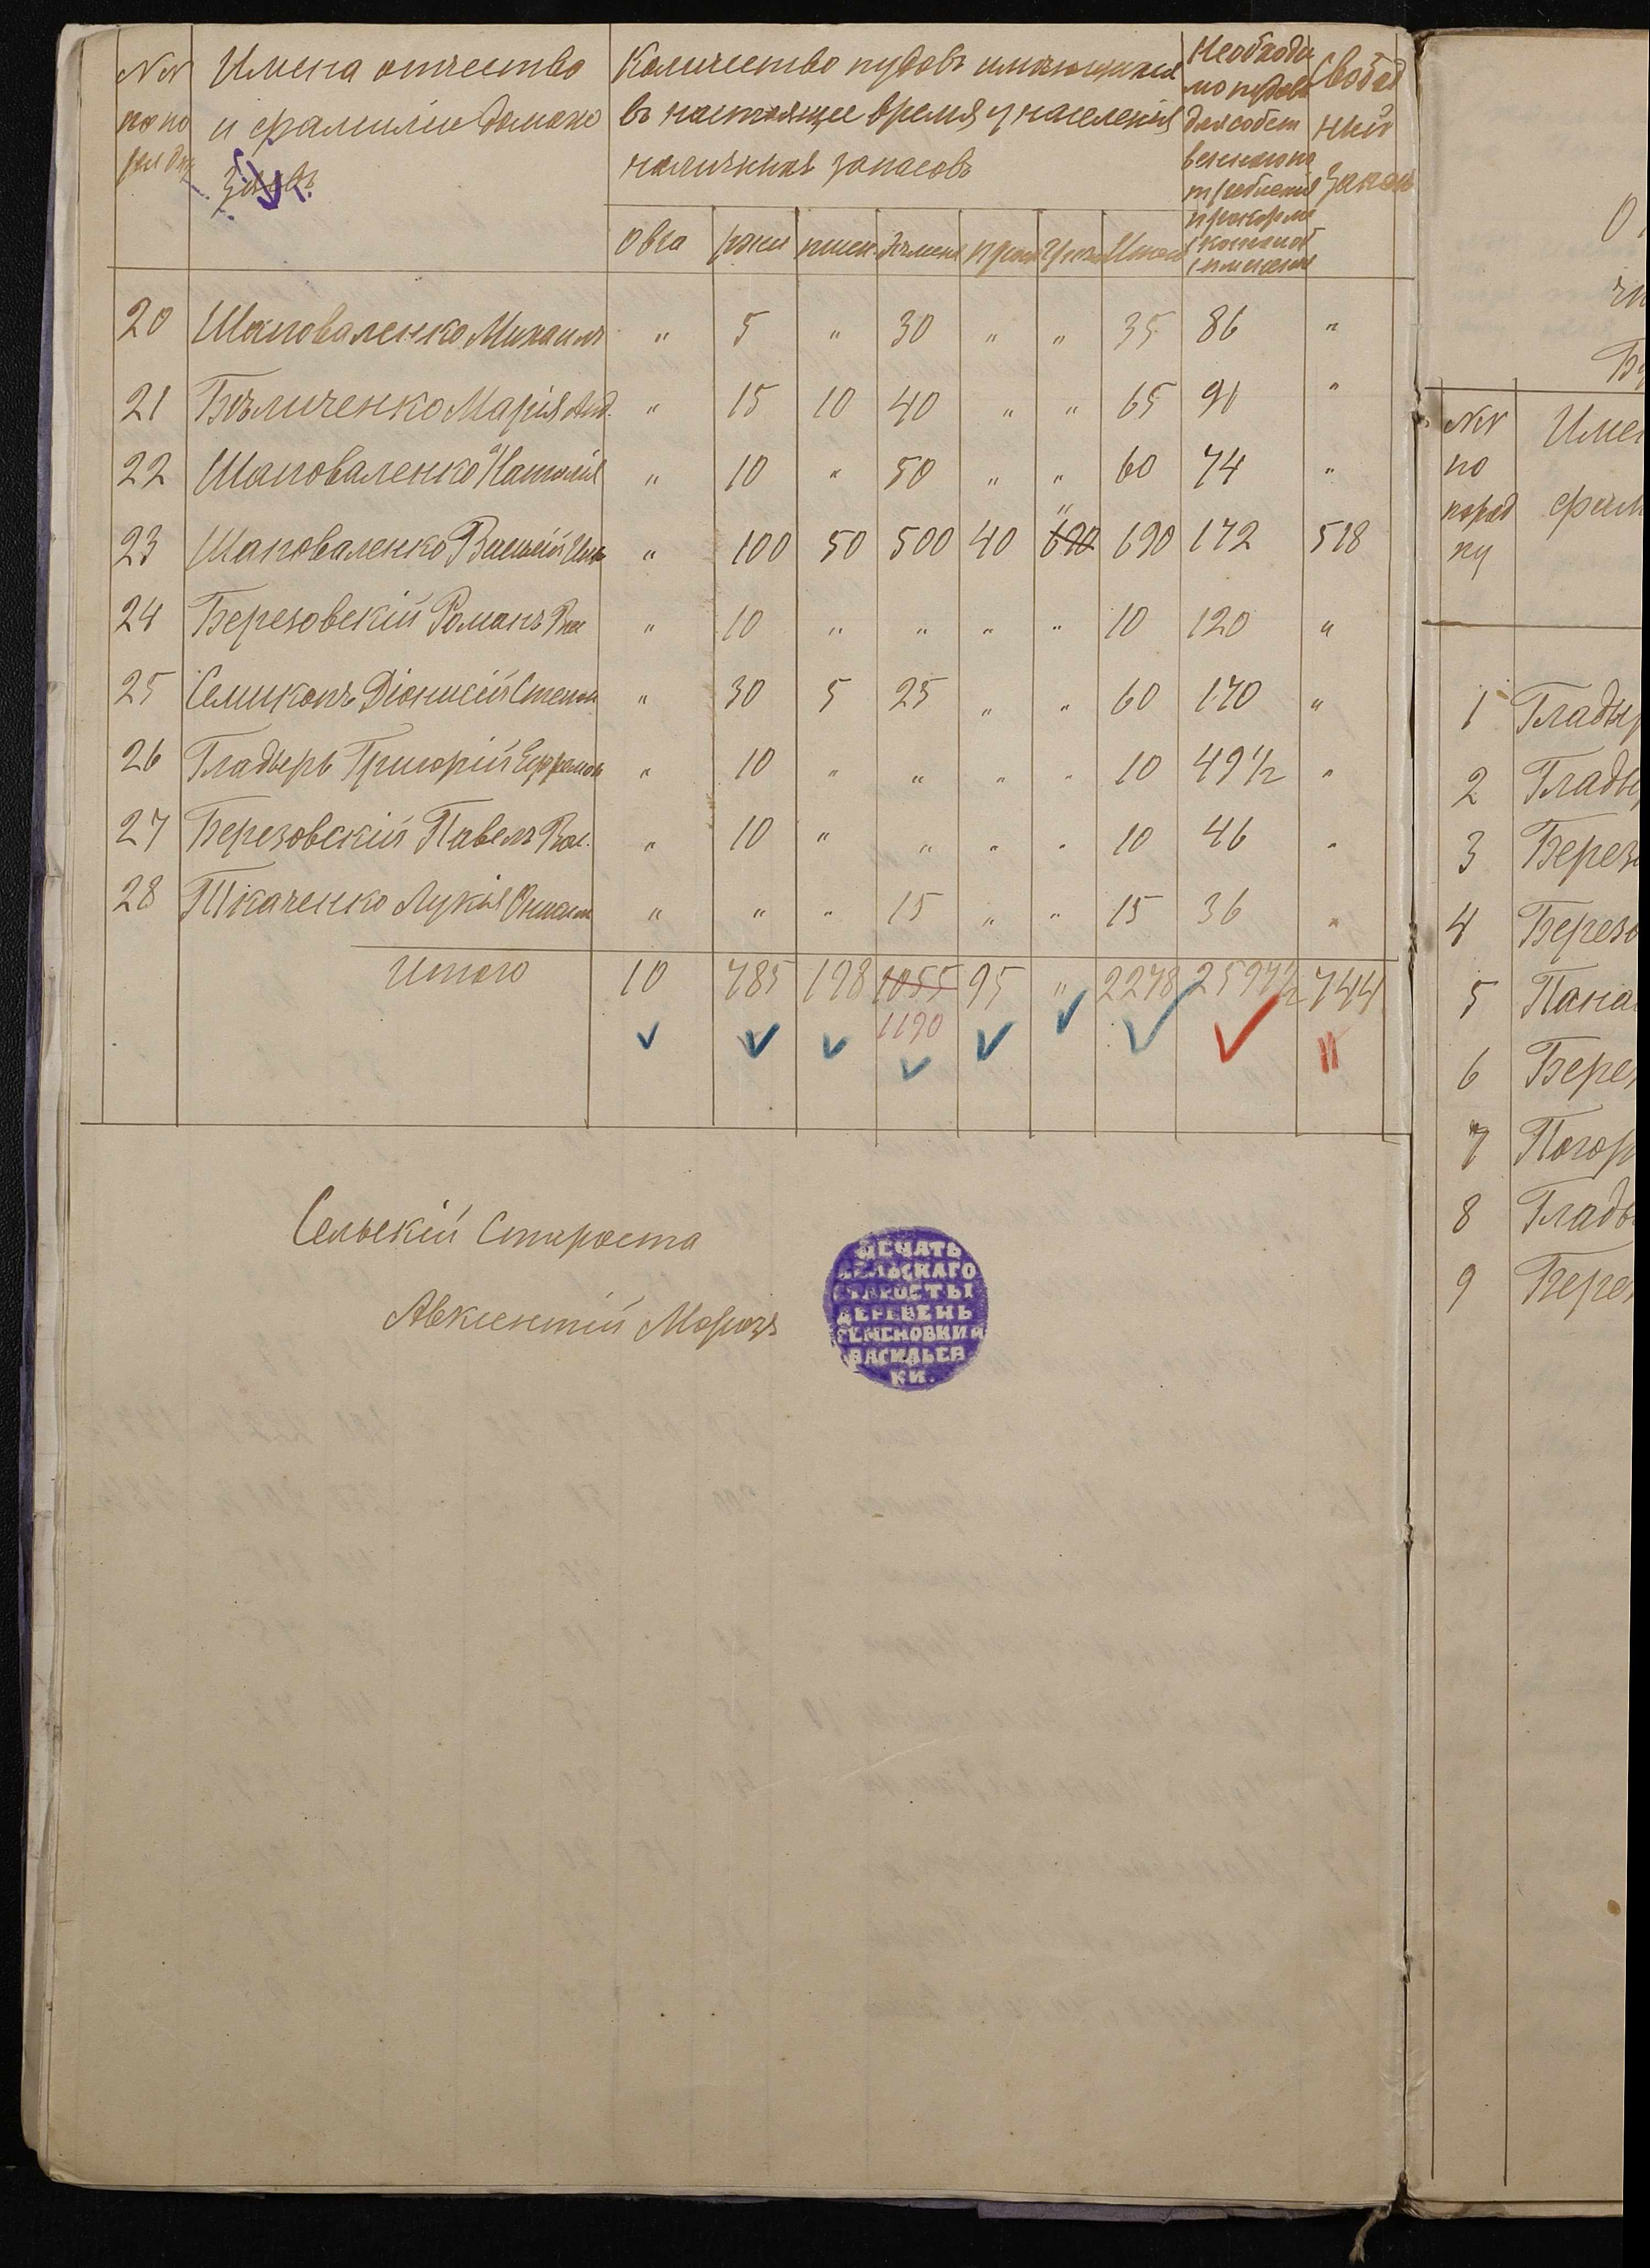 №№ по по ряд ку
Имена отчество
и фамилии домохо
зяевъ
Количество пудовъ имѣющихся
въ настоящее время у населенія
наличныхъ запасовъ
Необходи
мо пудовъ
для собст
веннаго по
требленія
прокорм
скота
Свобод
ный
запасъ
овса ржи пшен. ячменя проса греч Итого
20 Шаповаленко Михаилъ " 5 " 30 " " 35 86 "
21 Бѣличенко Марія Анд. " 15 10 40 " " 65 90 "
22 Шаповаленко Наталія " 10 " 50 " " 60 74 "
23 Шаповаленко Василій " 100 50 500 40 " 690 690 172 518
24 Березовскій Романъ Вас " 10 " " " " 10 120 "
25 Семикопъ Діонисій Степан " 30 5 25 " " 60 170 "
26 Гладырь Григорій Ефремов " 10 " " " " 10 49 1/2 "
27 Березовскій Павелъ Вас. " 10 " " " " 10 46 "
28 Ткаченко Лукія Онисим " " " 15 " " 15 36 "
Итого 10 785 198 1055 95 " 2278 2597 1/2 744
1190
Сельскій Староста
Авксентій Морозъ
ПЕЧАТЬ
СЕЛЬСКАГО
СТАРОСТЫ
ДЕРЕВЕНЬ
СЕМЕНОВКИ И
ВАСИЛЬЕВ
КИ.
О
Бе
№№
по
поряд
ку
Имен
фами
1 Глады
2 Глады
3 Берез
4 Березо
5 Пана
6 Берез
7 Погор
8 Глады
9 Берез